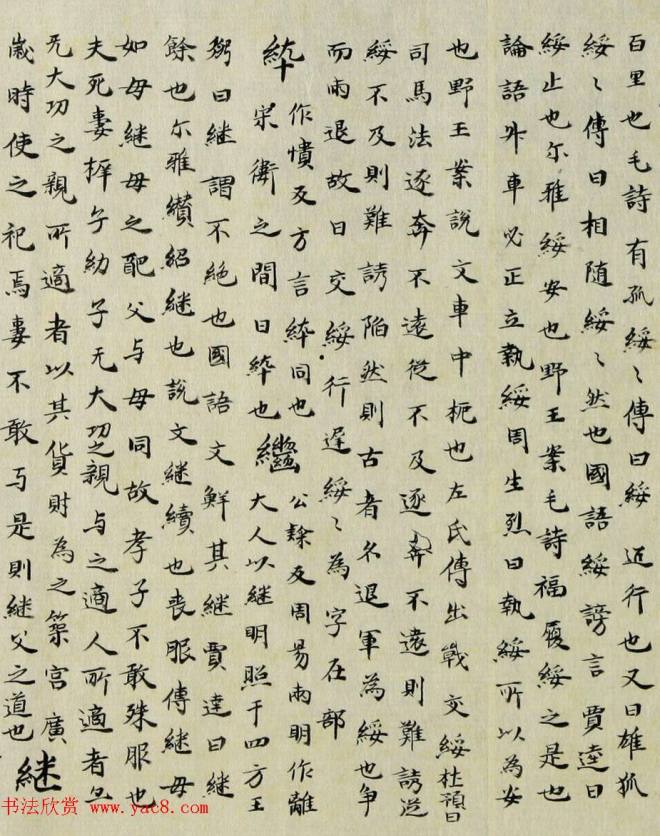 百里也毛詩有狐綏〻傳曰綏〻近行也又曰雄狐
綏〻傳曰相随綏〻然也國語綏謗言賈逵曰
綏止也尓雅綏安也野王案毛詩福履綏之是也
論語升車必正立執綏周生烈曰執綏所以為安
也野王案說文車中把也左氏傳出戰交綏杜預曰
司馬法逐奔不遠從不及逐奔不遠則難誘從
綏不及則難誘陷然則古者名退軍為綏也争
而兩退故曰交綏行遅綏〻為字在部
綷 作憒反方言綷同也宋衛之間曰綷也
繼 公𥻆反周易兩明作離大人以继明照于四方王
弼曰继謂不絶也國語文鮮其继賈逵曰继
餘也尓雅纉紹继也說文继續也喪服傳继母
如母继母之配父与母同故孝子不敢殊服也
夫死妻稺子幼子无大功之親与之適人所適者亦
无大功之親所適者以其貨財為之築宫廣
歳時使之祀焉妻不敢与是則继父之道也 継
书法欣赏 www.yac8.com